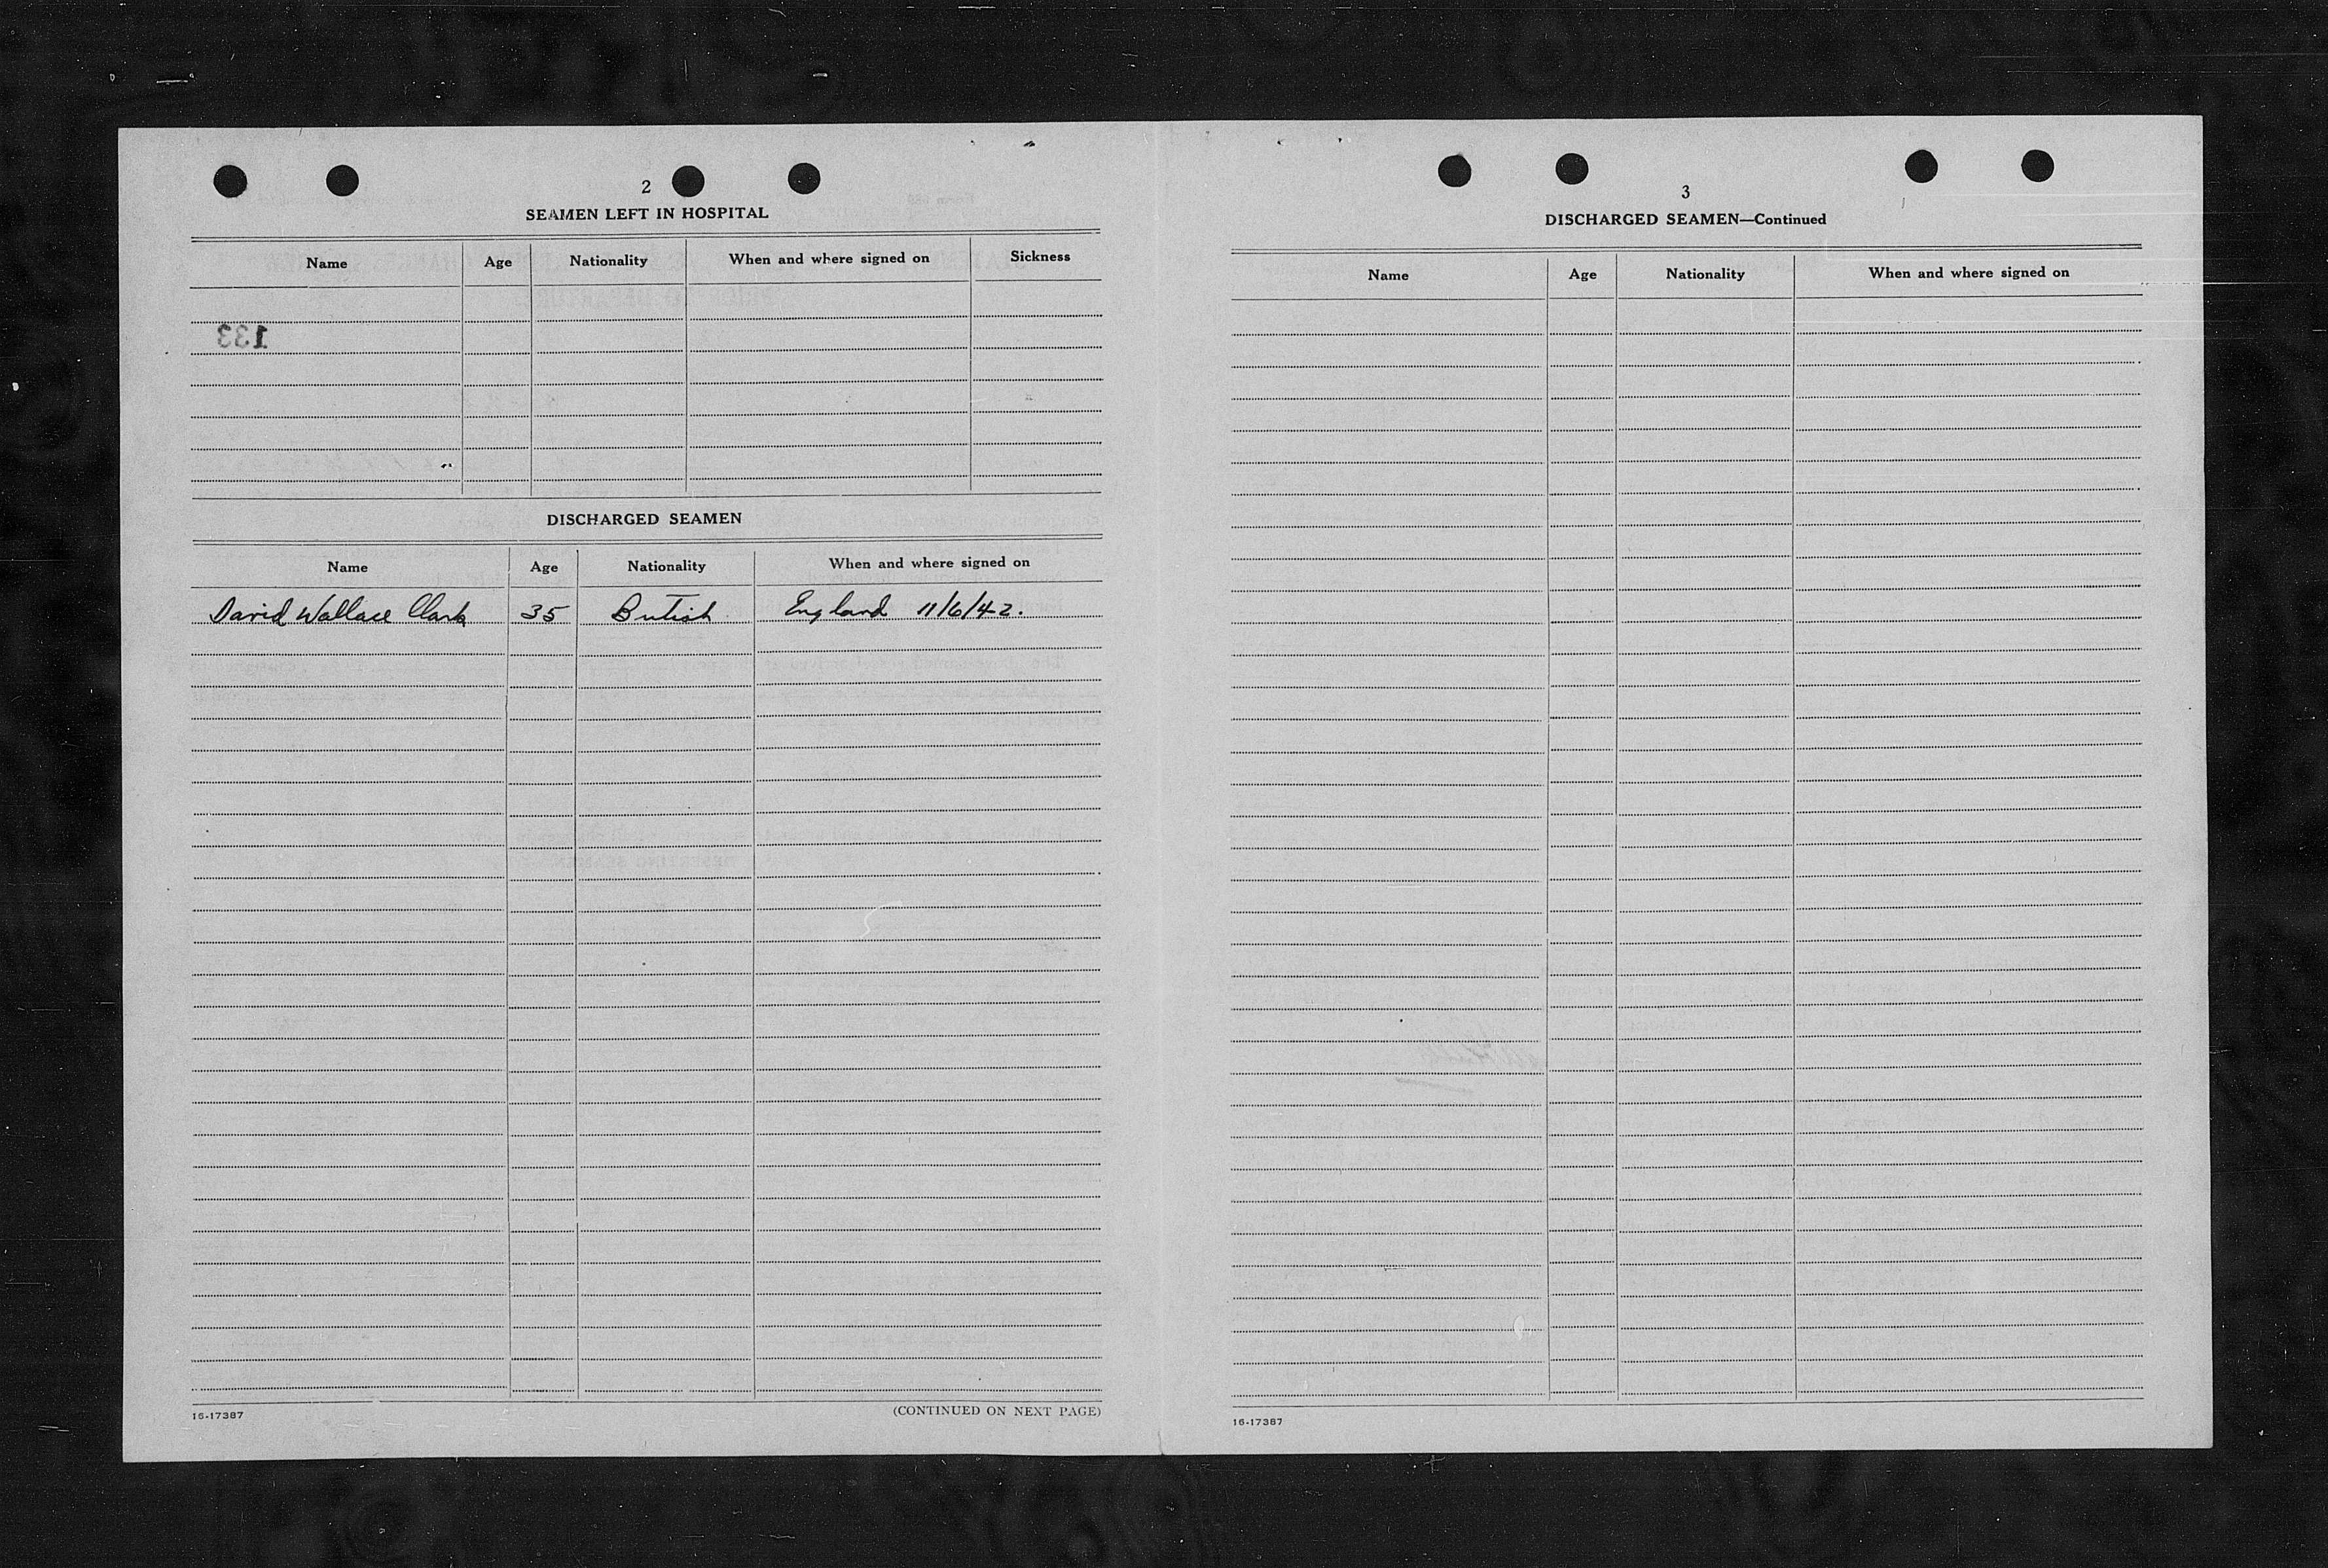 2
SEAMEN LEFT IN HOSPITAL
Name Age Nationality When and where signed on Sickness
133
DISCHARGED SEAMEN
Name Age Nationality When and where signed on
David Wallace Clark 35 British England 11/6/42.
16-17387 (CONTINUED ON NEXT PAGE)
3
DISCHARGED SEAMEN—Continued
Name Age Nationality When and where signed on
16-17387